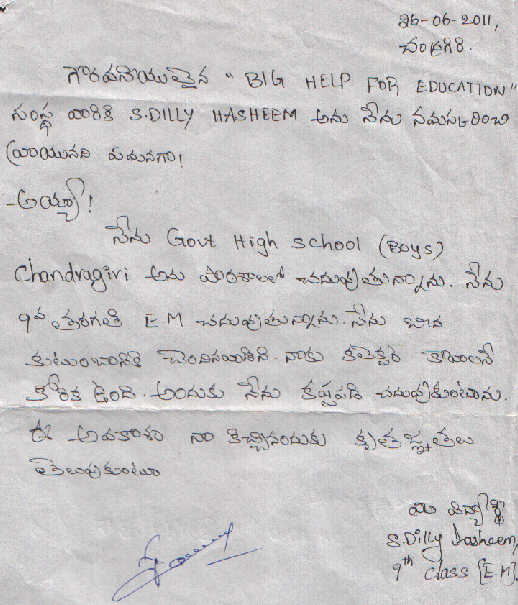 26-06-2011,
చంద్రగిరి.
గౌరవనీయులైన " BIG HELP FOR EDUCATION"
సంస్థ వారికి S.DILLY HASHEEM అను నేను నమస్కరించి
వ్రాయునది ఏమనగా!
అయ్యా!
నేను Govt High School (Boys)
Chandragiri అను పాఠశాలలో చదువుతున్నాను. నేను
9వ తరగతి E M చదువుతున్నాను. నేను బీద
కుటుంబానికి చెందినవాడిని. నాకు కలెక్టర్ కావాలనే
కోరిక ఉంది. అందుకు నేను కష్టపడి చదువుకుంటాను.
ఈ అవకాశం నా కిచ్చినందుకు కృతజ్ఞతలు
తెలుపుకుంటూ
మీ విద్యార్థి
S.Dilly hasheem,
9th class [E M].